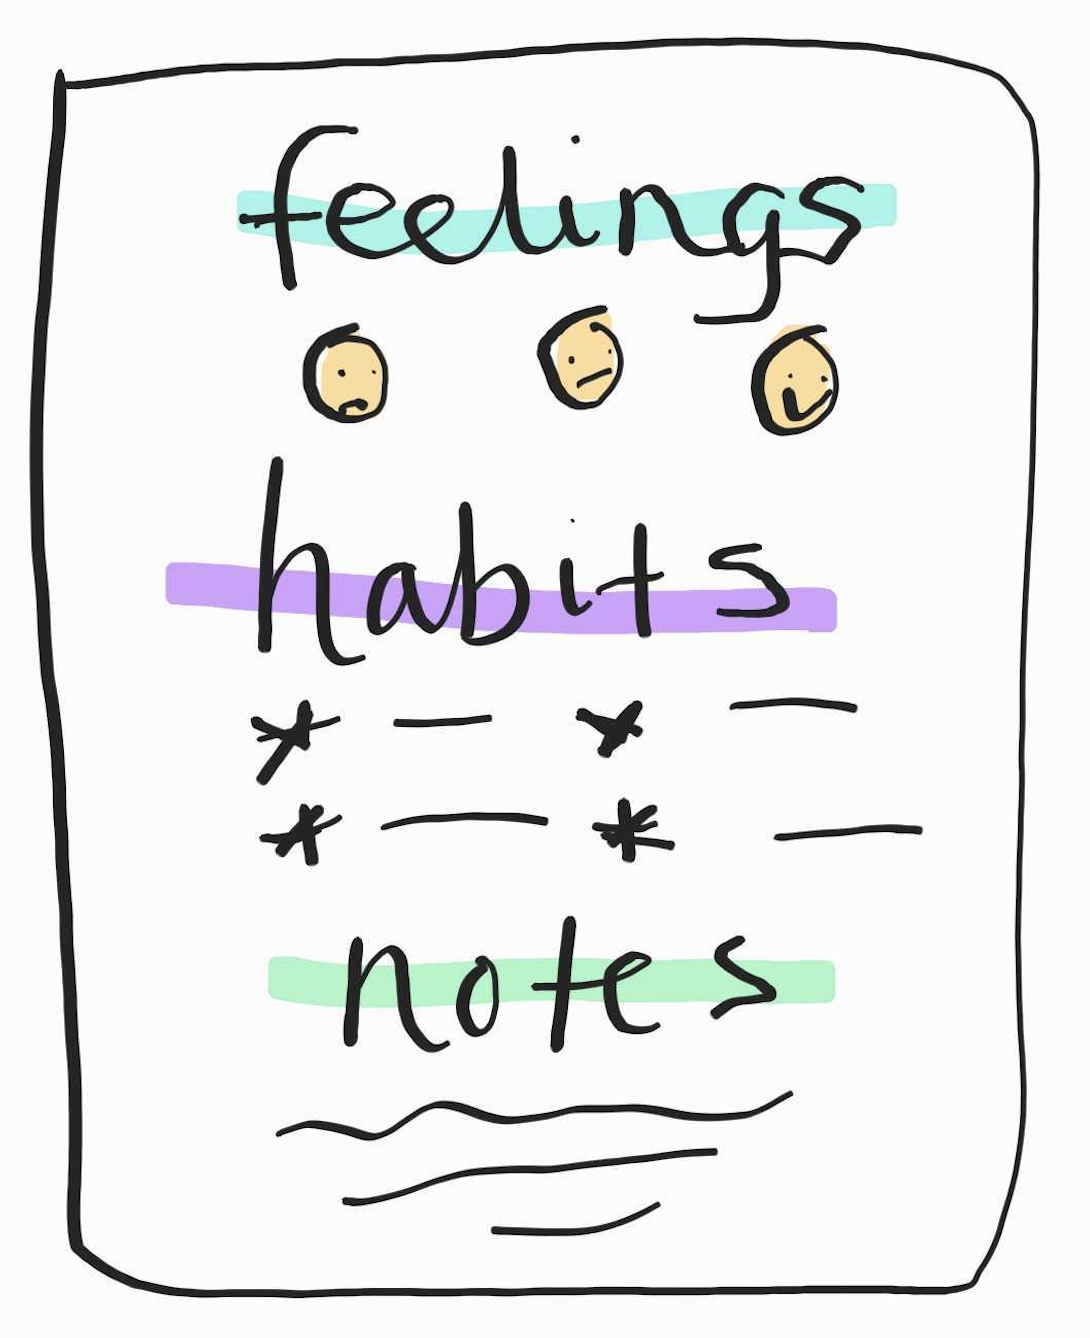 feelings
habits
notes